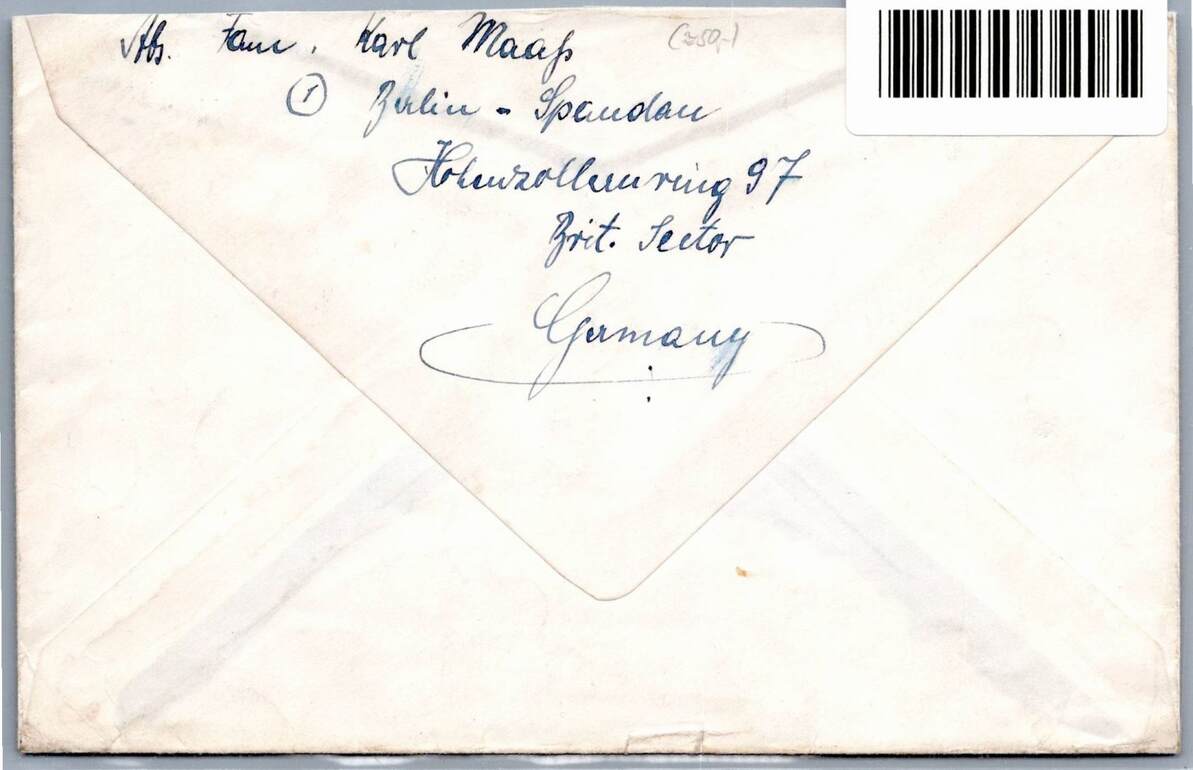 Abs. Fam. Karl Maaß (250,-)
(1) Berlin - Spandau
Hohenzollernring 97
Brit. Sector
Germany